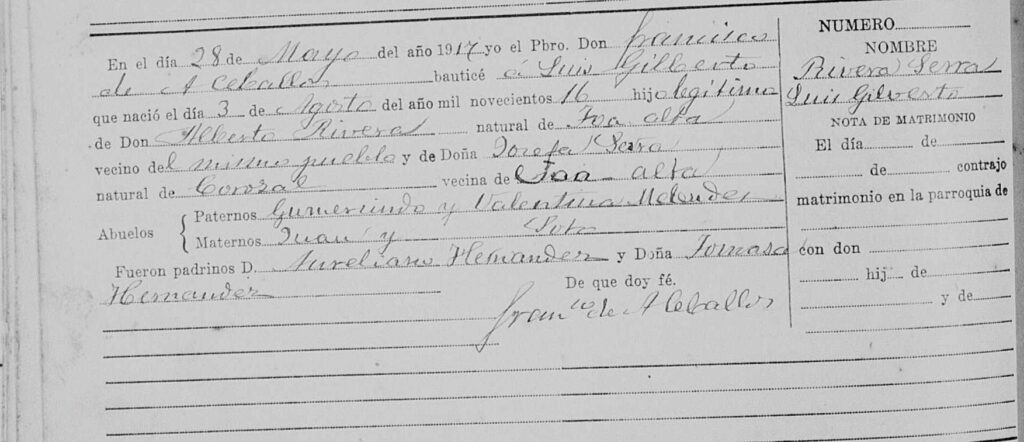 En el día 28 de Mayo del año 1917 yo el Pbro. Don Francisco
de A Ceballos bauticé á Luis Gilberto
que nació el día 3 de Agosto del año mil novecientos 16 hijo legítimo
de Don Alberto Rivera natural de Toa alta
vecino del mismo pueblo y de Doña Josefa Serra
natural de Corozal vecina de Toa alta
Abuelos
Paternos Gumersindo y Valentina Melendez
Maternos Juan y Soto
Fueron padrinos D. Aureliano Hernandez y Doña Tomasa
Hernandez De que doy fé.
Franco de A Ceballos
NUMERO
NOMBRE
Rivera Serra
Luis Gilverto
NOTA DE MATRIMONIO
El día de
de contrajo
matrimonio en la parroquia de
con don
hij de
y de